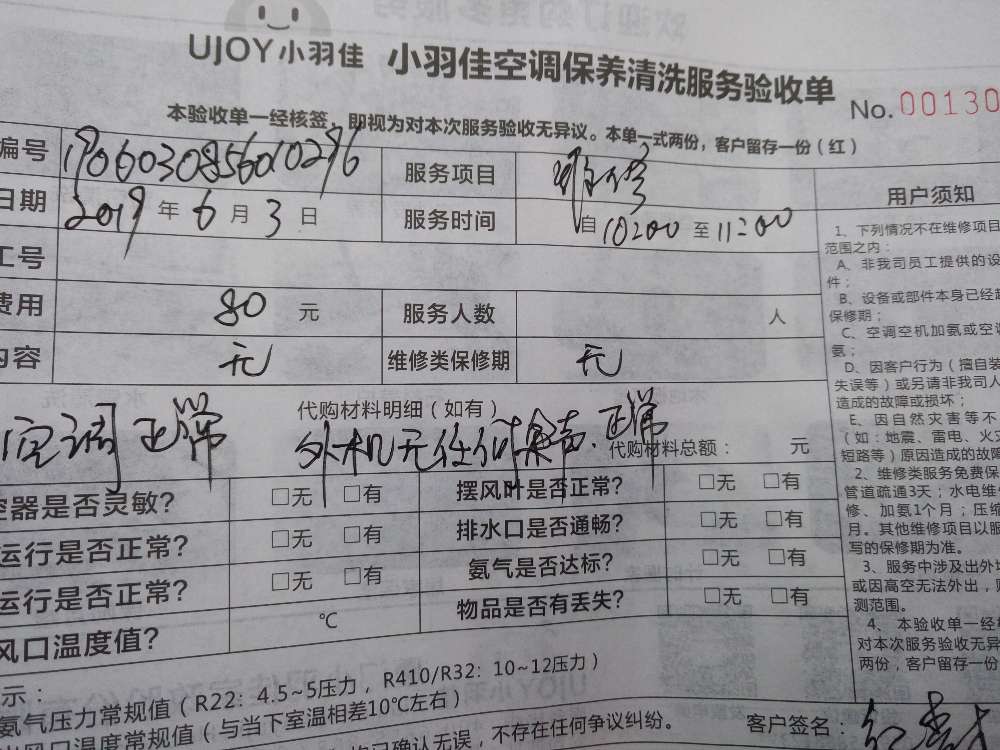 UJOY小羽佳 小羽佳空调保养清洗服务验收单
No.00130
本验收单一经核签，即视为对本次服务验收无异议。本单一式两份，客户留存一份（红）
编号 1906030856010296 服务项目 维修
日期 2019 年 6 月 3 日 服务时间 自 10:00 至 11:00
工号
费用 80 元 服务人数 人
内容 无 维修类保修期 无
代购材料明细（如有）
空调正常 外机无任何杂声.正常
代购材料总额： 元
控器是否灵敏? □无 □有 摆风叶是否正常? □无 □有
运行是否正常? □无 □有 排水口是否通畅? □无 □有
运行是否正常? □无 □有 氨气是否达标? □无 □有
风口温度值? ℃ 物品是否有丢失? □无 □有
示：
氨气压力常规值（R22：4.5~5压力，R410/R32：10~12压力）
风口温度常规值（与当下室温相差10℃左右）
已确认无误，不存在任何争议纠纷。
客户签名：
用户须知
1、下列情况不在维修项目
范围之内：
A、非我司员工提供的设
件；
B、设备或部件本身已经超
保修期；
C、空调空机加氨或空
氨；
D、因客户行为（擅自装
失误等）或另请非我司人
造成的故障或损坏；
E、因自然灾害等不
（如：地震、雷电、火灾
短路等）原因造成的故障
2、维修类服务免费保
管道疏通3天；水电维
修、加氨1个月；压缩
月。其他维修项目以服
写的保修期为准。
3、服务中涉及出外墙
或因高空无法外出，
测范围。
4、本验收单一经核
对本次服务验收无异
两份，客户留存一份